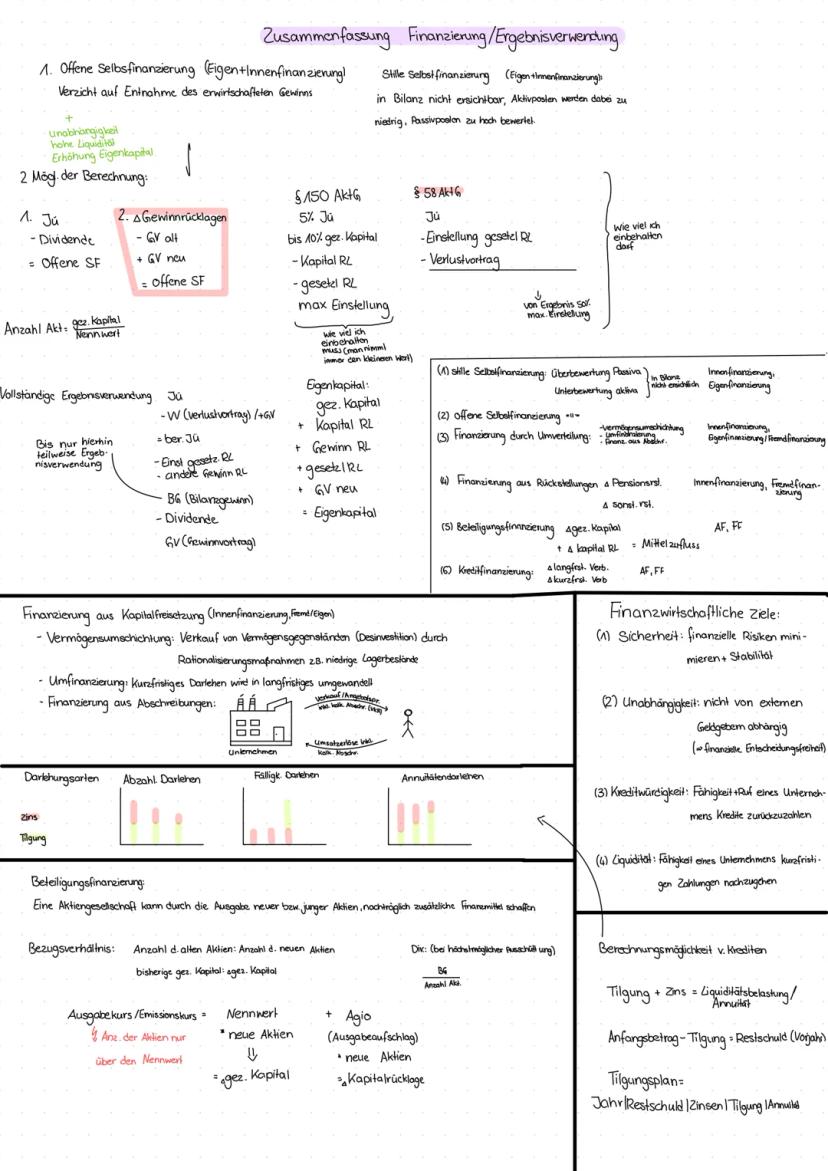 Zusammenfassung Finanzierung/Ergebnisverwendung
1. Offene Selbsfinanzierung (Eigen+Innenfinanzierung)
Verzicht auf Entnahme des erwirtschafteten Gewinns
+
unabhängigkeit
hohe Liquidität
Erhöhung Eigenkapital
Stille Selbstfinanzierung (Eigen+Innenfinanzierung):
in Bilanz nicht ersichtbar, Aktivposten werden dabei zu
niedrig, Passivposten zu hoch bewertet.
2 Mögl. der Berechnung:
1. Jü
- Dividende
= Offene SF
2. Δ Gewinnrücklagen
- GV alt
+ GV neu
= Offene SF
§ 150 AktG
5% Jü
bis 10% gez. Kapital
- Kapital RL
- gesetzl RL
max Einstellung
wie viel ich
einbehalten
muss (man nimmt
immer den kleineren Wert)
§ 58 AktG
Jü
- Einstellung gesetzl RL
- Verlustvortrag
von Ergebnis 50%
max. Einstellung
wie viel ich
einbehalten
darf
Anzahl Akt = gez. Kapital
Nennwert
Vollständige Ergebnisverwendung
Jü
- VV (Verlustvortrag) /+GV
= ber. Jü
- Einst gesetz. RL
- andere Gewinn RL
BG (Bilanzgewinn)
- Dividende
GV (Gewinnvortrag)
Bis nur hierhin
teilweise Ergeb-
nisverwendung
Eigenkapital:
gez. Kapital
+ Kapital RL
+ Gewinn RL
+ gesetzl RL
+ GV neu
= Eigenkapital
(1) stille Selbstfinanzierung: Überbewertung Passiva
Unterbewertung aktiva
in Bilanz
nicht ersichtlich
Innenfinanzierung,
Eigenfinanzierung
(2) Offene Selbstfinanzierung -"-
(3) Finanzierung durch Umverteilung:
- Vermögensumschichtung
- Umfinanzierung
- Finanz. aus Abschr.
Innenfinanzierung,
Eigenfinanzierung/Fremdfinanzierung
(4) Finanzierung aus Rückstellungen Δ Pensionsrst.
Δ sonst. rst.
Innenfinanzierung, Fremdfinan-
zierung
(5) Beteiligungsfinanzierung Δ gez. Kapital
+ Δ kapital RL = Mittelzufluss
AF, FF
(6) Kreditfinanzierung: Δ langfrst. Verb.
Δ kurzfrst. Verb
AF, FF
Finanzierung aus Kapitalfreisetzung (Innenfinanzierung, Fremd/Eigen)
- Vermögensumschichtung: Verkauf von Vermögensgegenständen (Desinvestition) durch
Rationalisierungsmaßnahmen z.B. niedrige Lagerbestände
- Umfinanzierung: Kurzfristiges Darlehen wird in langfristiges umgewandelt
- Finanzierung aus Abschreibungen:
Unternehmen
Umsatzerlöse inkl.
kalk. Abschr.
Darlehungsarten
Abzahl. Darlehen
Fälligk. Darlehen
Annuitätendarlehen
Zins
Tilgung
Finanzwirtschaftliche Ziele:
(1) Sicherheit: finanzielle Risiken mini-
mieren + Stabilität
(2) Unabhängigkeit: nicht von externen
Geldgebern abhängig
(⇒ finanzielle Entscheidungsfreiheit)
(3) Kreditwürdigkeit: Fähigkeit+Ruf eines Unterneh-
mens Kredite zurückzuzahlen
(4) Liquidität: Fähigkeit eines Unternehmens kurzfristi-
gen Zahlungen nachzugehen
Beteiligungsfinanzierung:
Eine Aktiengesellschaft kann durch die Ausgabe neuer bzw. junger Aktien, nachträglich zusätzliche Finanzmittel schaffen
Bezugsverhältnis: Anzahl d. alten Aktien: Anzahl d. neuen Aktien
bisherige gez. Kapital: Δ gez. Kapital
Div.: (bei höchstmöglicher Ausschüttung)
BG
Anzahl Akt.
Ausgabekurs/Emissionskurs = Nennwert + Agio
(Ausgabeaufschlag)
* neue Aktien
* neue Aktien
= Δ gez. Kapital
= Δ Kapitalrücklage
Anz. der Aktien nur
über den Nennwert
Berechnungsmöglichkeit v. Krediten
Tilgung + Zins = Liquiditätsbelastung/
Annuität
Anfangsbetrag - Tilgung = Restschuld (Vorjahr)
Tilgungsplan=
Jahr|Restschuld|Zinsen|Tilgung|Annuität